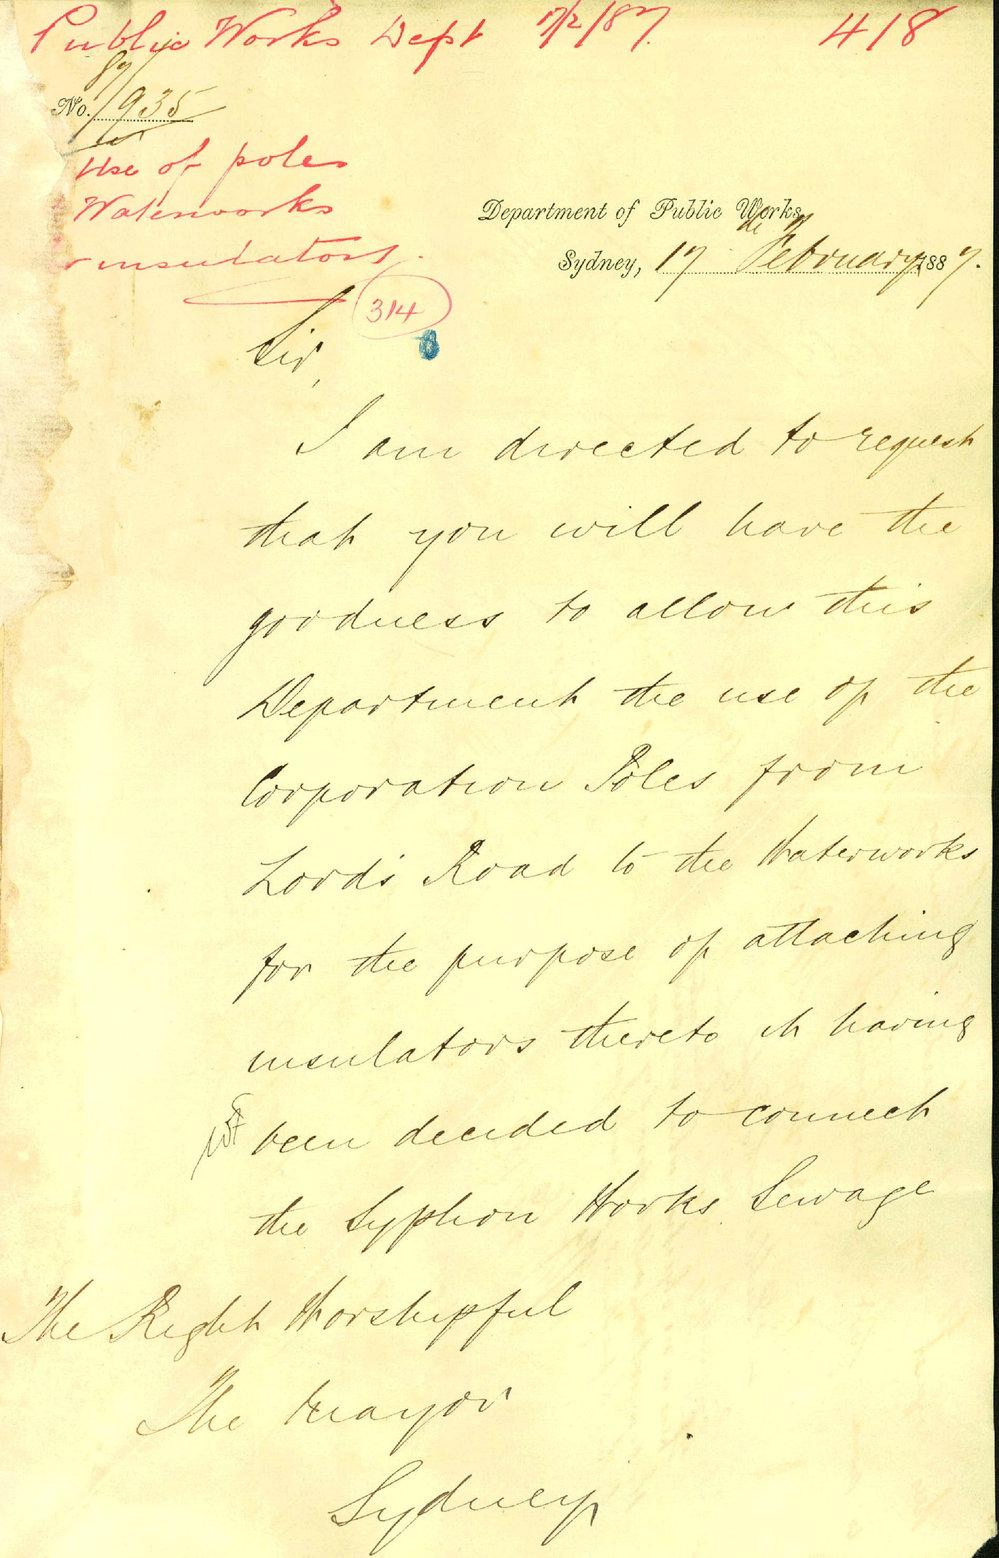 Public Works Dept 17/2/87. 418
87/
No. 935
Use of poles
Waterworks
insulators.
Department of Public Works,
Sydney, 17 February 1887.
314
Sir,
I am directed to request
that you will have the
goodness to allow this
Department the use of the
Corporation Poles from
Lord's Road to the Waterworks
for the purpose of attaching
insulators thereto it having
been decided to connect
the Syphon Works Sewage
The Right Worshipful
The Mayor
Sydney